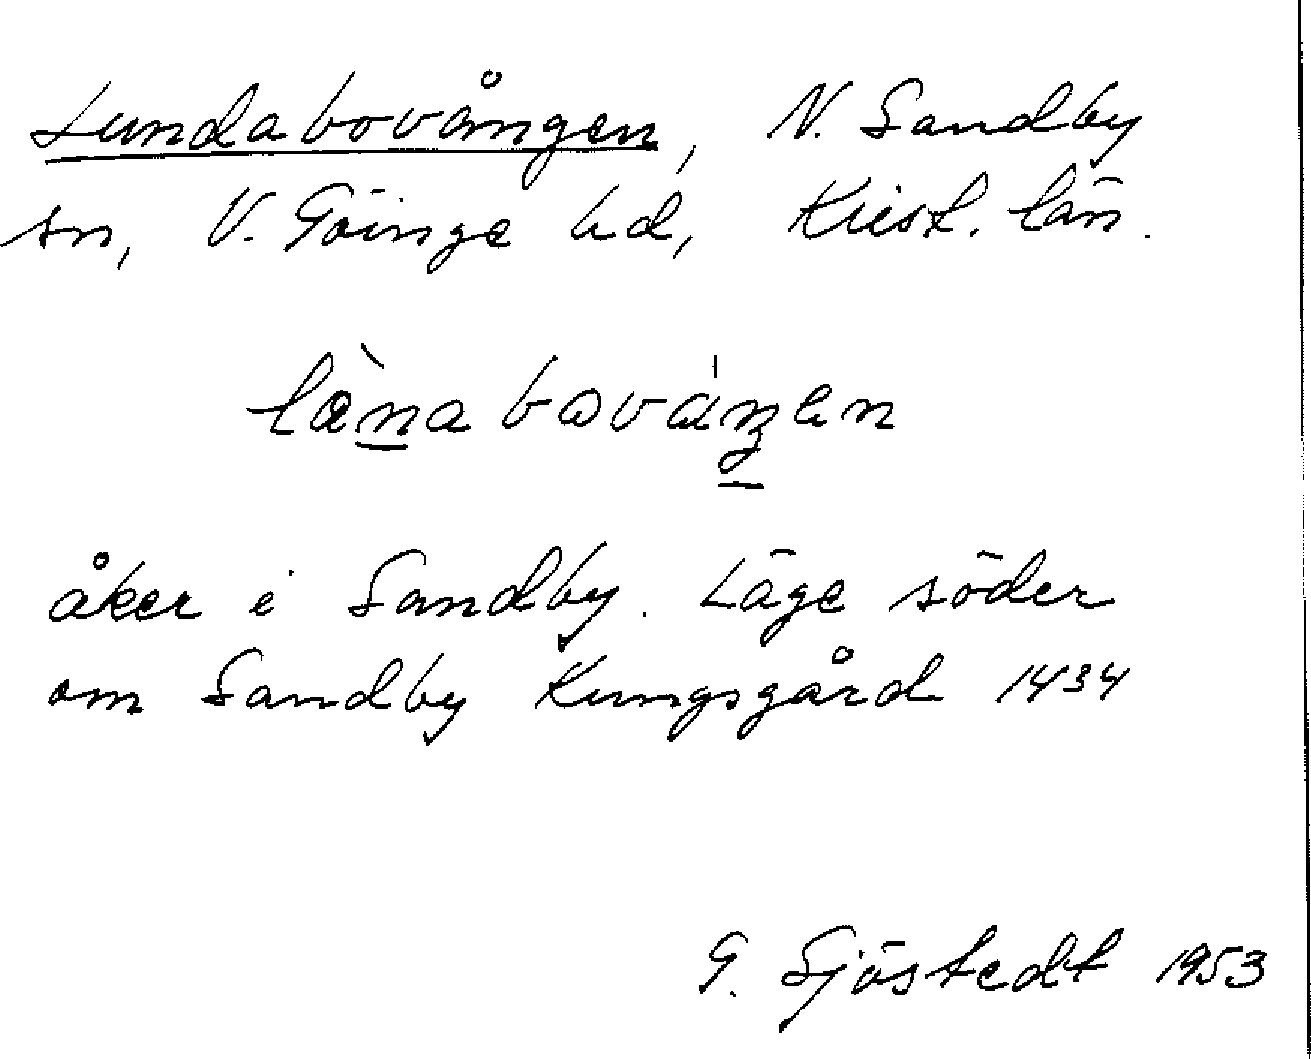 Lundabovången, N. Sandby
sn, V. Göinge hd, Krist. län.
åker i Sandby. Läge söder
om Sandby Kungsgård 1434
G. Sjöstedt 1953